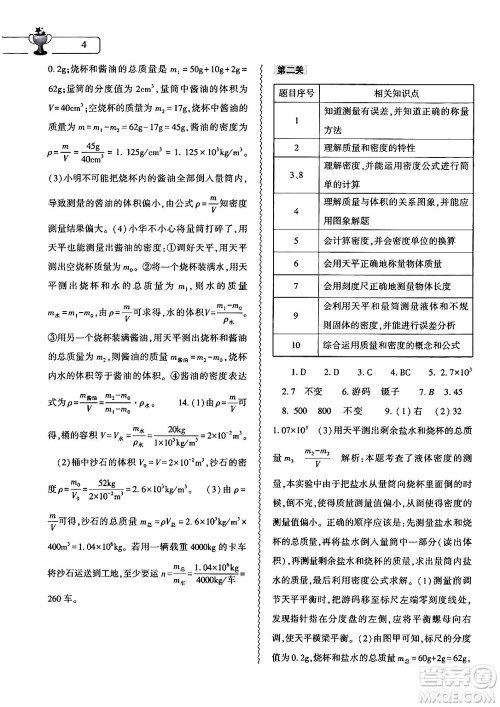 4
0.2g;烧杯和酱油的总质量是 m₁=50g+10g+2g=
62g;量筒的分度值为 2mL,量筒中酱油的体积为
V=40cm³;空烧杯质量为 m₂=17g,烧杯中酱油的
质量为 m=m₁-m₂=62g-17g=45g,酱油的密度为
ρ=m/V=45g/40cm³=1.125g/cm³=1.125×10³kg/m³.
(3)小明不可能把烧杯内的酱油全部倒入量筒内,
导致测量的体积偏小,由密度公式 ρ=m/V可知,密度
测量结果偏大。(4)小华不小心将量筒打碎了,用
天平也能测量出酱油的密度:①调好天平,用天平
测出空烧杯质量为 m₀。②将一个烧杯装满水,用天
平测出烧杯和水的总质量为 m₁,则水的质量为
m水=m₁-m₀,水的密度已知,由 ρ=m/V可求得,水的体积V=(m₁-m₀)/ρ水
③用另一个烧杯装满酱油,用天平测出烧杯和酱油
的总质量为 m₂。④烧杯内酱油的体积等于烧杯
内水的体积,则酱油的密度表达式
ρ=m酱油/V=(m₂-m₀)/(m₁-m₀)·ρ水 14.(1)由 ρ=m/V可
得,桶的容积 V=V水=m水/ρ水=20kg/(1×10³kg/m³)=2×10⁻²m³
(2)桶中沙石的体积 V石=V=2×10⁻²m³,沙石的
密度 ρ=m石/V石=52kg/(2×10⁻²m³)=2.6×10³kg/m³ (3)由 ρ=
m/V可得,沙石的总质量 m总=ρV总=2.6×10³kg/m³×
400m³=1.04×10⁶kg,用一辆载重 4000kg 的卡车
将沙石运送到工地,至少需运 n=1.04×10⁶kg/(4000kg/车)=
260 车.
第二关
题目序号 相关知识点
1 知道测量有误差,并知道正确的称量方法
2 理解质量和密度的特性
3、8 理解密度,并能应用密度公式进行简单的计算
4 理解质量与体积的关系图象,并能应用图象解题
5 会计算密度,并会密度单位的换算
6 会用天平正确地称量物体质量
7 会用刻度尺正确地测量物体长度
9 会用天平和量筒测量液体和不规则固体的密度,并会误差分析
10 综合运用质量和密度的概念和公式
1. D 2. C 3. B 4. C 5. 2.7×10³
2.7 不变 6. 游码 镊子 7. B 3.45
8. 500 800 不变 9. (1)右 (2)32
1.07×10³ (3)用天平测出剩余盐水和烧杯的总质
解析:本题考查了液体密度的测
量实验。在实验中由于把盐水从量筒向烧杯中倒
时,会使质量测量值偏小,从而使密度测量值偏小,
所以本实验的顺序应先用天平测量盐水和烧杯的
总质量,再将盐水倒入量筒中一部分(读出体
积),再测量剩余盐水和烧杯的总质量,两次之差就
是倒入量筒中盐水的质量。(1)测量前需要调
节天平平衡,把游码移到标尺左端零刻度线处,
发现指针指在分度盘的左侧,应向右移动平衡螺
母,使天平横梁平衡。(2)由图甲可知,标尺的分度值
为 0.2g,烧杯和盐水的总质量为 m总=60g+2g=62g,